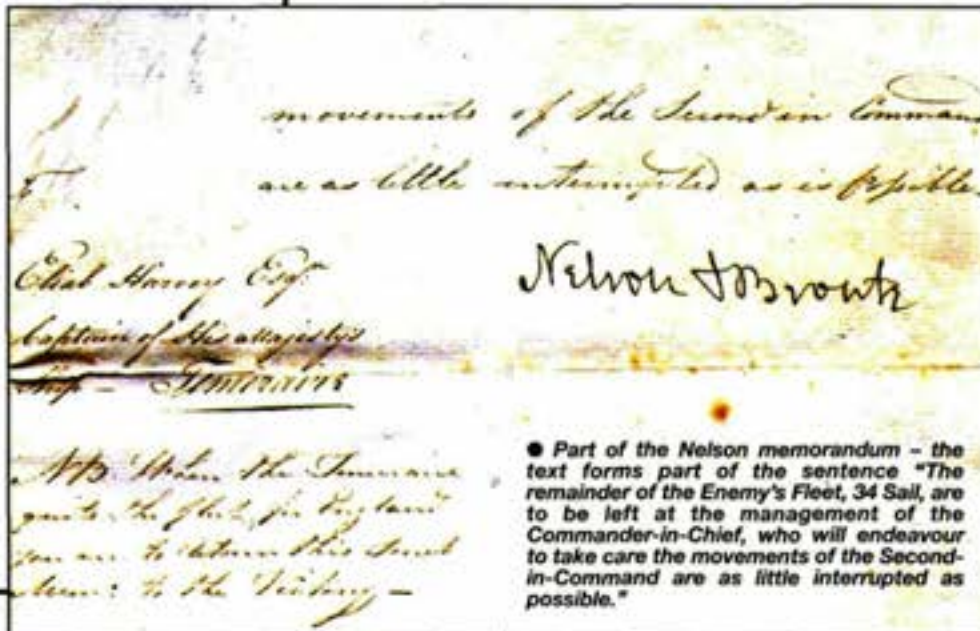 movements of the Second in Command
are as little interrupted as is possible
Nelson & Bronte
Eliab Harvey Esqr.
Captain of His Majesty's
Ship – Temeraire
NB When the Temeraire
quits the fleet, for England
you are to return this Secret
Mem: to the Victory –
● Part of the Nelson memorandum – the
text forms part of the sentence "The
remainder of the Enemy's Fleet, 34 Sail, are
to be left at the management of the
Commander-in-Chief, who will endeavour
to take care the movements of the Second-
in-Command are as little interrupted as
possible."